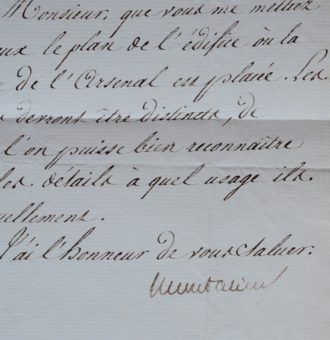 Monsieur, que vous me mettiez
le plan de l'édifice où la
de l'Arsenal est placée. Les
devront être distincts, de
l'on puisse bien reconnaître
les détails à quel usage ils
J'ai l'honneur de vous saluer.